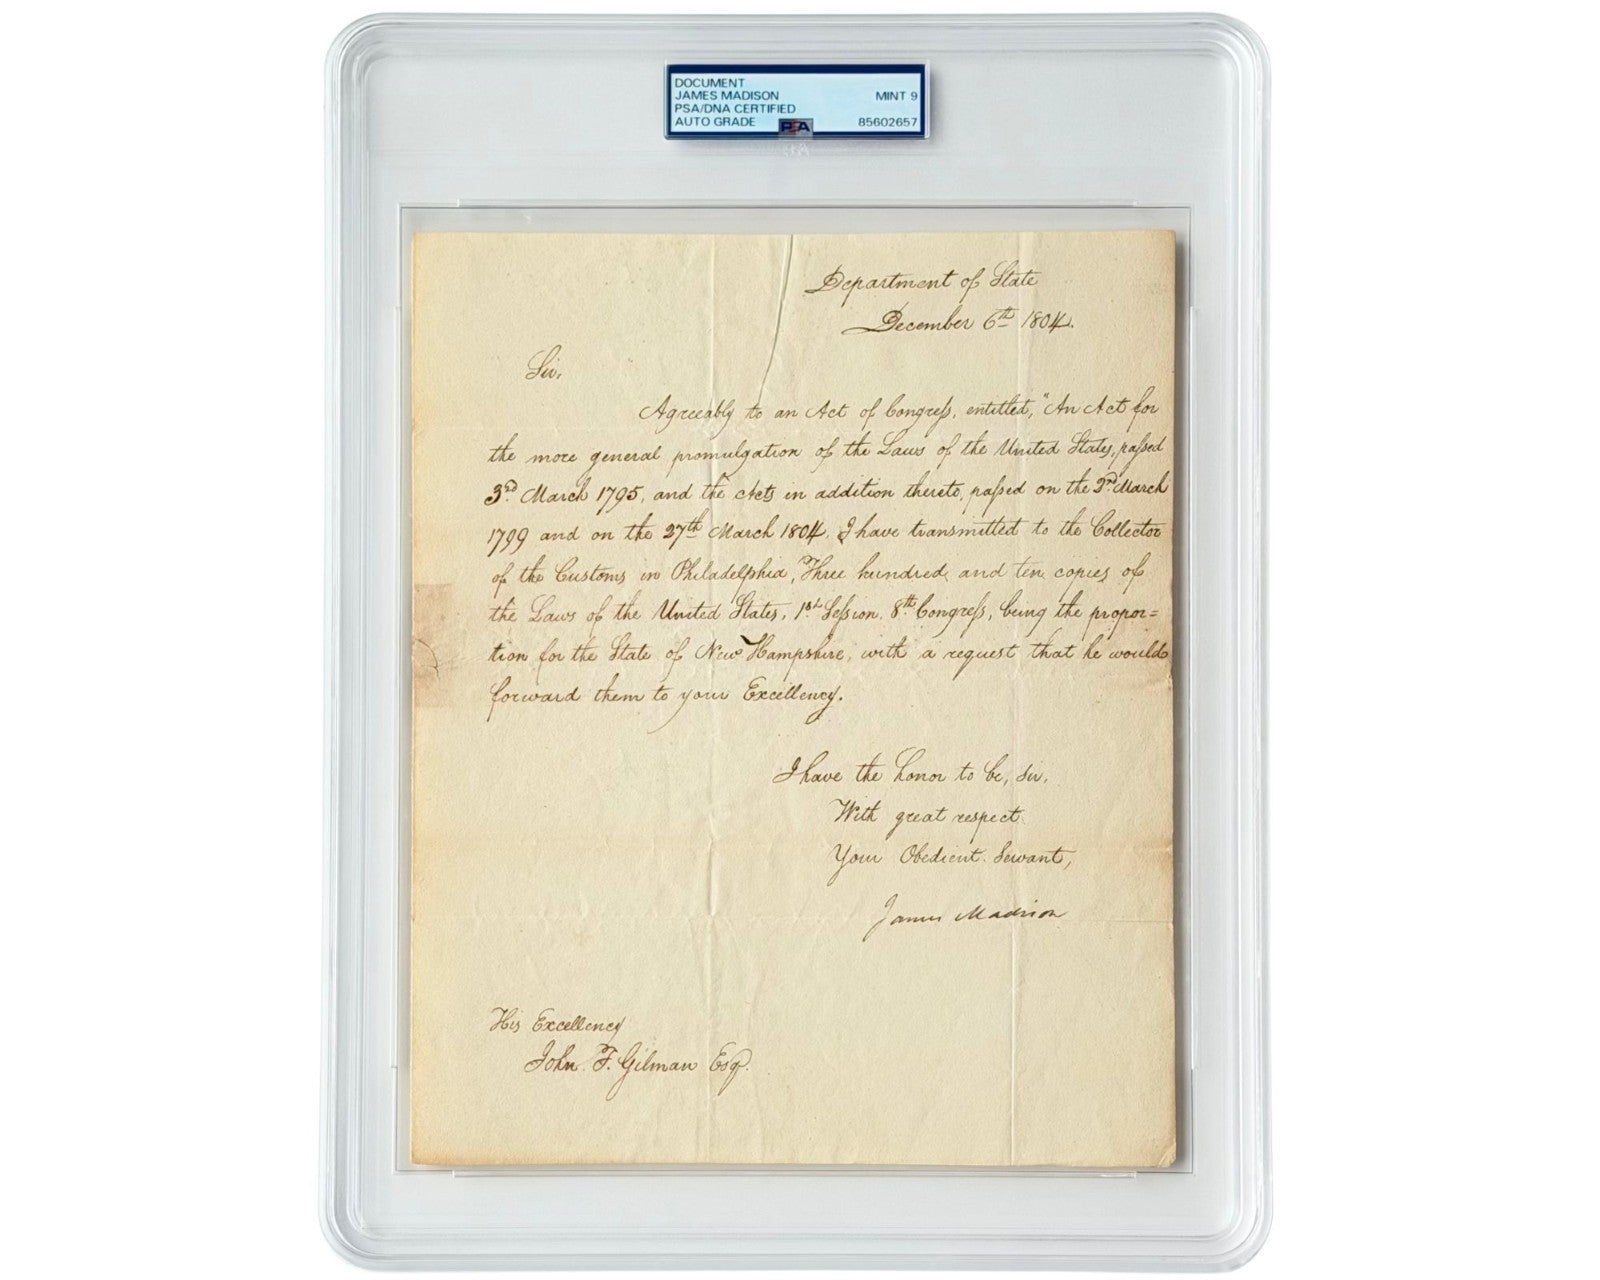 DOCUMENT
JAMES MADISON MINT 9
PSA/DNA CERTIFIED
AUTO GRADE PSA 85602657
Department of State
December 6th 1804.
Sir,
Agreeably to an Act of Congreſs, entitled, "An Act for
the more general promulgation of the Laws of the United States, paſsed
3rd March 1795, and the Acts in addition thereto, paſsed on the 2nd March
1799 and on the 27th March 1804, I have transmitted to the Collector
of the Customs in Philadelphia, Three hundred and ten copies of
the Laws of the United States, 1st Seſsion, 8th Congreſs, being the propor=
tion for the State of New Hampshire, with a request that he would
forward them to your Excellency.
I have the honor to be, Sir,
With great respect
Your Obedient Servant,
James Madison
His Excellency
John F. Gilman Esq.